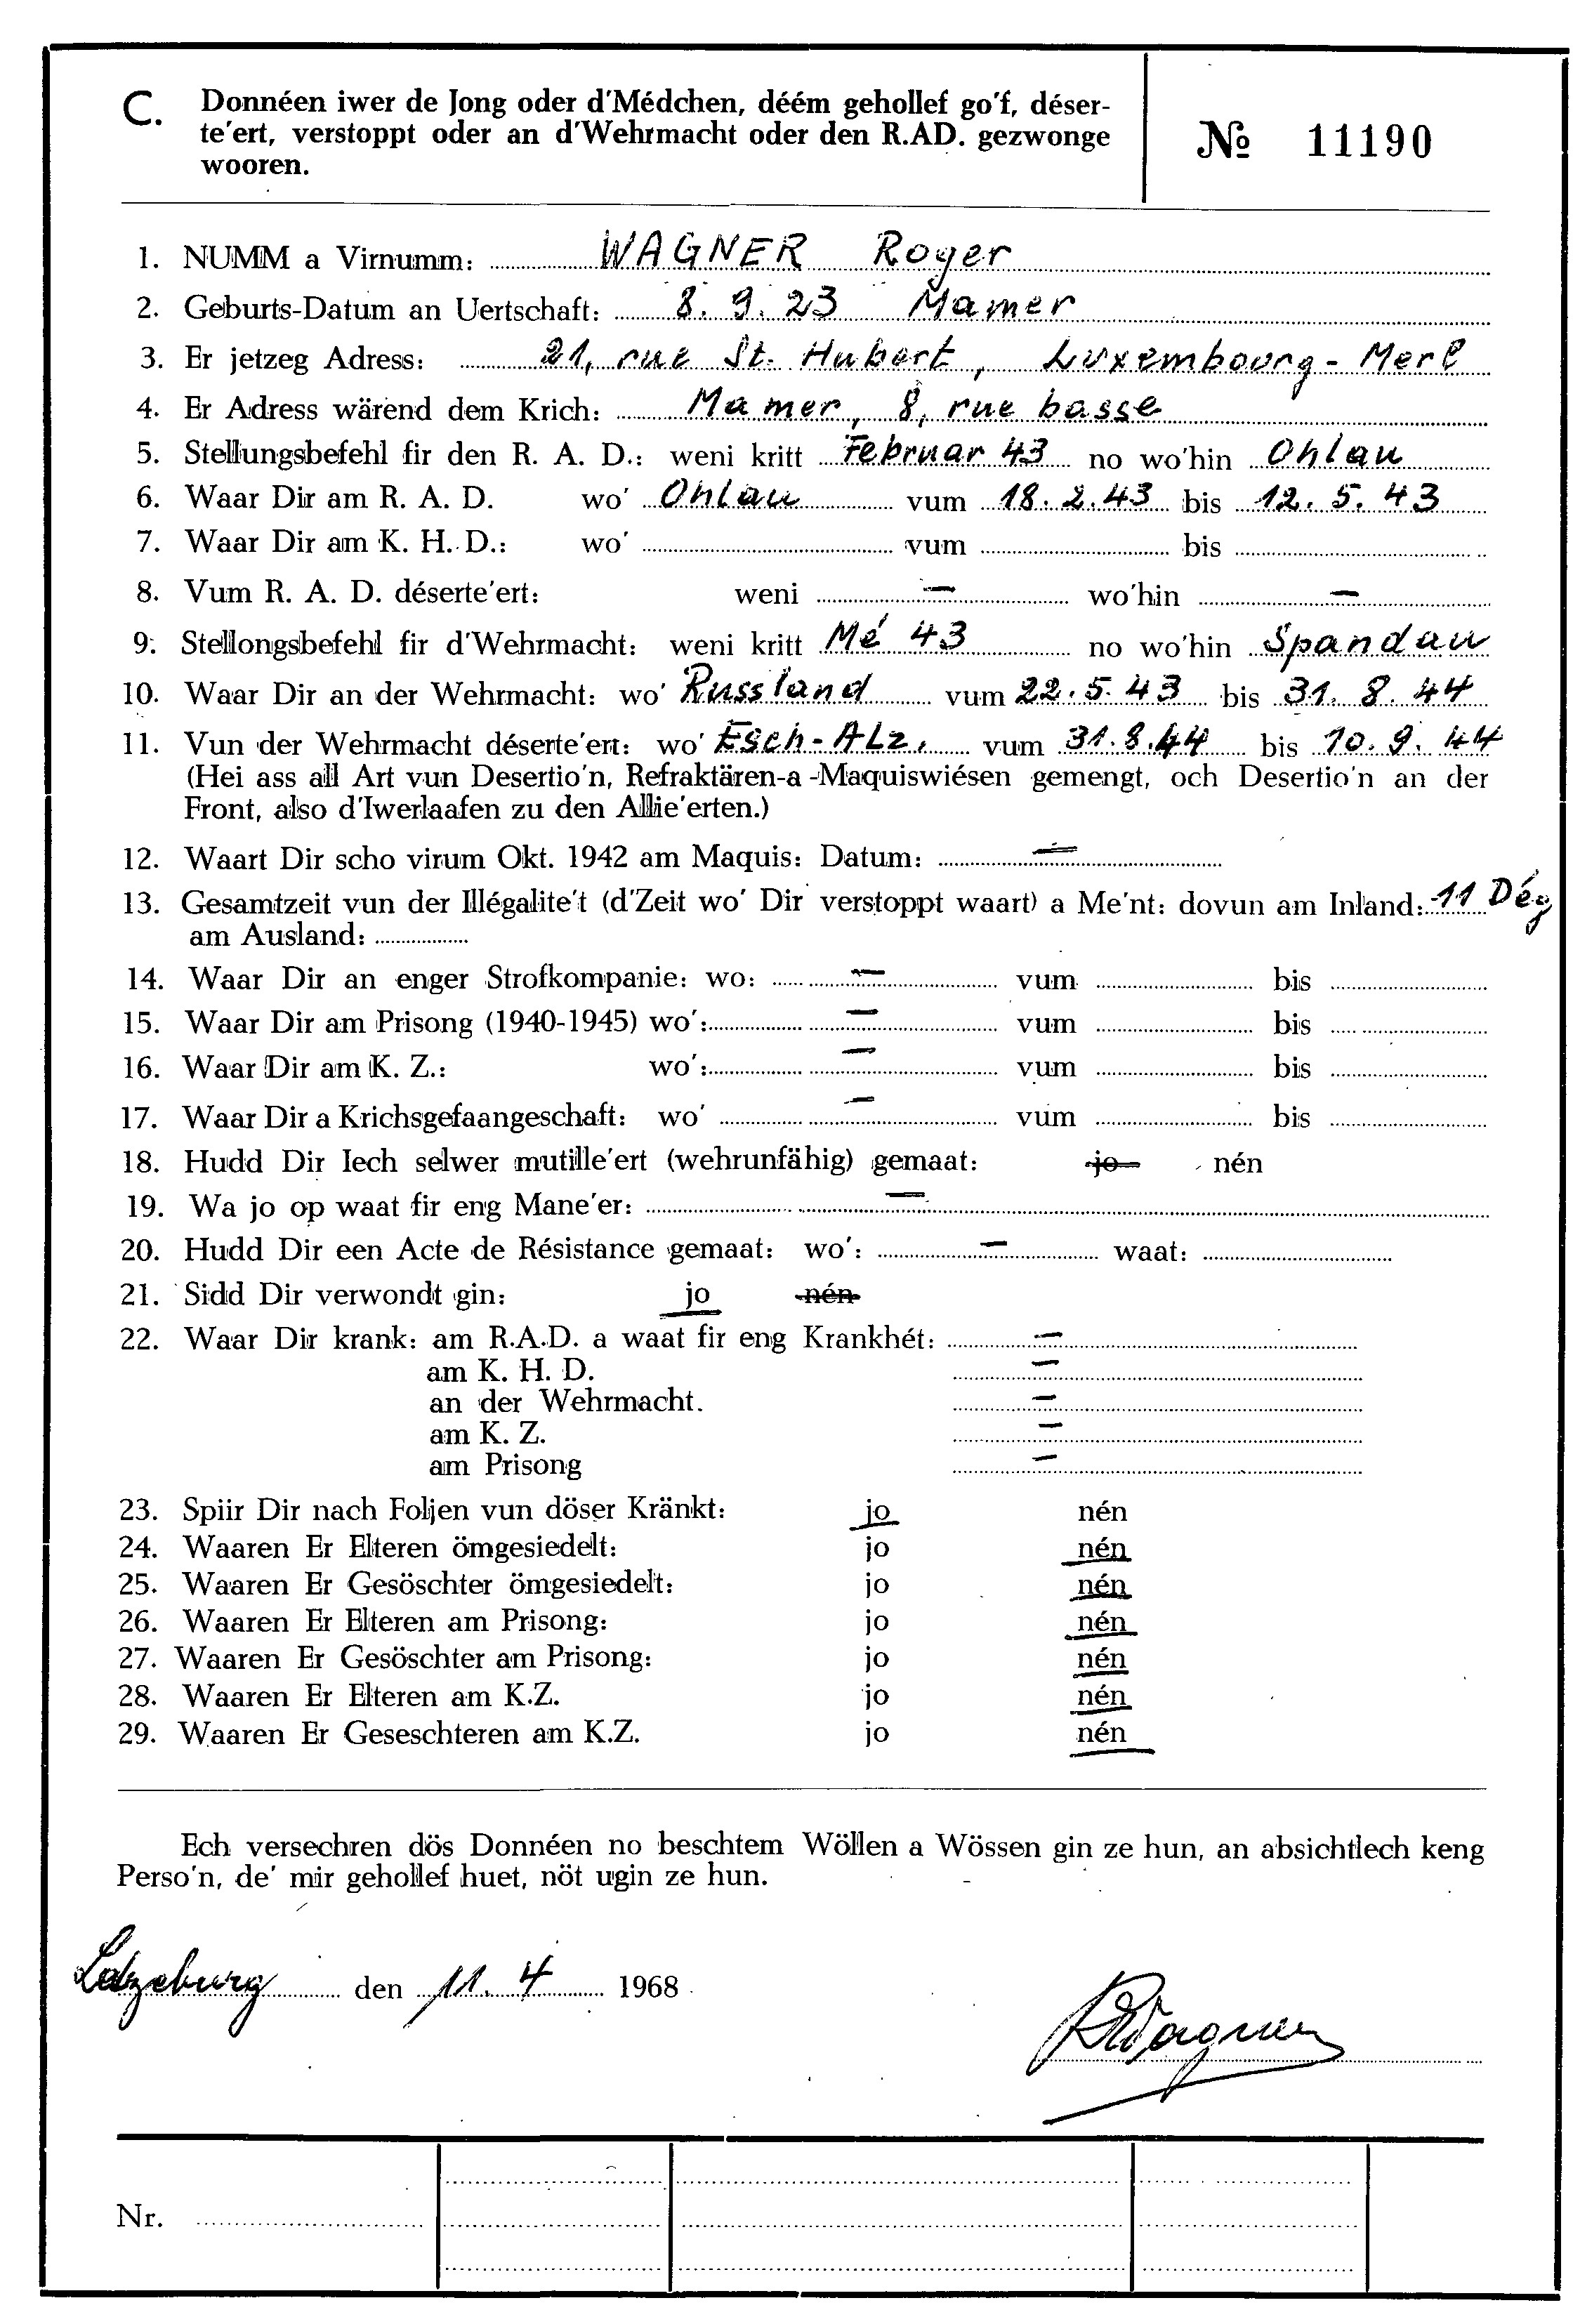 C. Donnéen iwer de Jong oder d'Médchen, déém gehollef go'f, déser-
te'ert, verstoppt oder an d'Wehrmacht oder den R.AD. gezwonge
wooren.
№ 11190
1. NUMM a Virnumm: WAGNER Roger
2. Geburts-Datum an Uertschaft: 8. 9. 23 Mamer
3. Er jetzeg Adress: 21, rue St. Hubert, Luxembourg - Merl
4. Er Adress wärend dem Krich: Mamer, 8, rue basse
5. Stellungsbefehl fir den R. A. D.: weni kritt Februar 43 no wo'hin Ohlau
6. Waar Dir am R. A. D. wo' Ohlau vum 18. 2. 43 bis 12. 5. 43
7. Waar Dir am K. H. D.: wo' vum bis
8. Vum R. A. D. déserte'ert: weni — wo'hin —
9. Stellongsbefehl fir d'Wehrmacht: weni kritt Mé 43 no wo'hin Spandau
10. Waar Dir an der Wehrmacht: wo' Russland vum 22. 5. 43 bis 31. 8. 44
11. Vun der Wehrmacht déserte'ert: wo' Esch-Alz. vum 31. 8. 44 bis 10. 9. 44
(Hei ass all Art vun Desertio'n, Refraktären-a -Maquiswiésen gemengt, och Desertio'n an der
Front, also d'Iwerlaafen zu den Allie'erten.)
12. Waart Dir scho virum Okt. 1942 am Maquis: Datum: —
13. Gesamtzeit vun der Illégalite't (d'Zeit wo' Dir verstoppt waart) a Me'nt: dovun am Inland: 11 Dég
am Ausland:
14. Waar Dir an enger Strofkompanie: wo: — vum bis
15. Waar Dir am Prisong (1940-1945) wo': — vum bis
16. Waar Dir am K. Z.: wo': — vum bis
17. Waar Dir a Krichsgefaangeschaft: wo' — vum bis
18. Hudd Dir Iech selwer mutille'ert (wehrunfähig) gemaat: jo nén
19. Wa jo op waat fir eng Mane'er: —
20. Hudd Dir een Acte de Résistance gemaat: wo': — waat:
21. Sidd Dir verwondt gin: jo nén
22. Waar Dir krank: am R.A.D. a waat fir eng Krankhét: —
am K. H. D. —
an der Wehrmacht. —
am K. Z. —
am Prisong —
23. Spiir Dir nach Foljen vun döser Kränkt: jo nén
24. Waaren Er Elteren ömgesiedelt: jo nén
25. Waaren Er Gesöschter ömgesiedelt: jo nén
26. Waaren Er Elteren am Prisong: jo nén
27. Waaren Er Gesöschter am Prisong: jo nén
28. Waaren Er Elteren am K.Z. jo nén
29. Waaren Er Geseschteren am K.Z. jo nén
Ech versechren dös Donnéen no beschtem Wöllen a Wössen gin ze hun, an absichtlech keng
Perso'n, de' mir gehollef huet, nöt ugin ze hun.
Letzeburg den 11. 4 1968
RWagner
Nr.